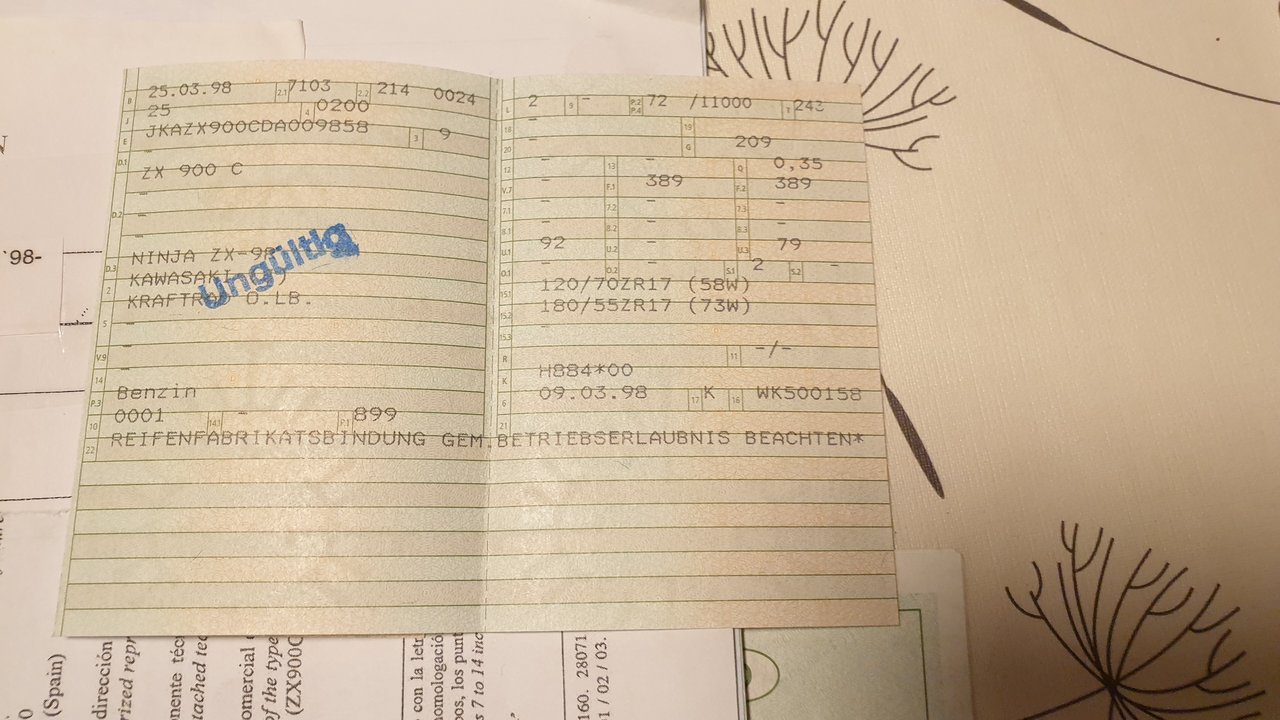 B 25.03.98 2.1 7103 2.2 214 0024
J 25 4 0200
E JKAZX900CDA009858 3 9
D.1 -
ZX 900 C
-
D.2 -
-
NINJA ZX-9R
D.3 KAWASAKI
2 KRAFTRAD O.LB.
5 -
-
V.9 -
14 Benzin
P.3 0001 14.1 - P.1 899
10
22 REIFENFABRIKATSBINDUNG GEM.BETRIEBSERLAUBNIS BEACHTEN*
L 2 9 - P.2 P.4 72 /11000 T 243
18 - 19
20 - G 209
12 - 13 - Q 0,35
V.7 - F.1 389 F.2 389
7.1 - 7.2 - 7.3 -
8.1 - 8.2 - 8.3 -
U.1 92 U.2 - U.3 79
O.1 - O.2 - S.1 2 S.2 -
15.1 120/70ZR17 (58W)
15.2 180/55ZR17 (73W)
15.3 -
R - 11 -/-
K H884*00
6 09.03.98 17 K 16 WK500158
21
Ungültig
98-
(Spain)
dirección
rized repr
onente téc
tached tec
omercial
of the type
(ZX900C
con la letr
omologació
pos, los punt
s 7 to 14 inc
160. 28071
1 / 02 / 03.